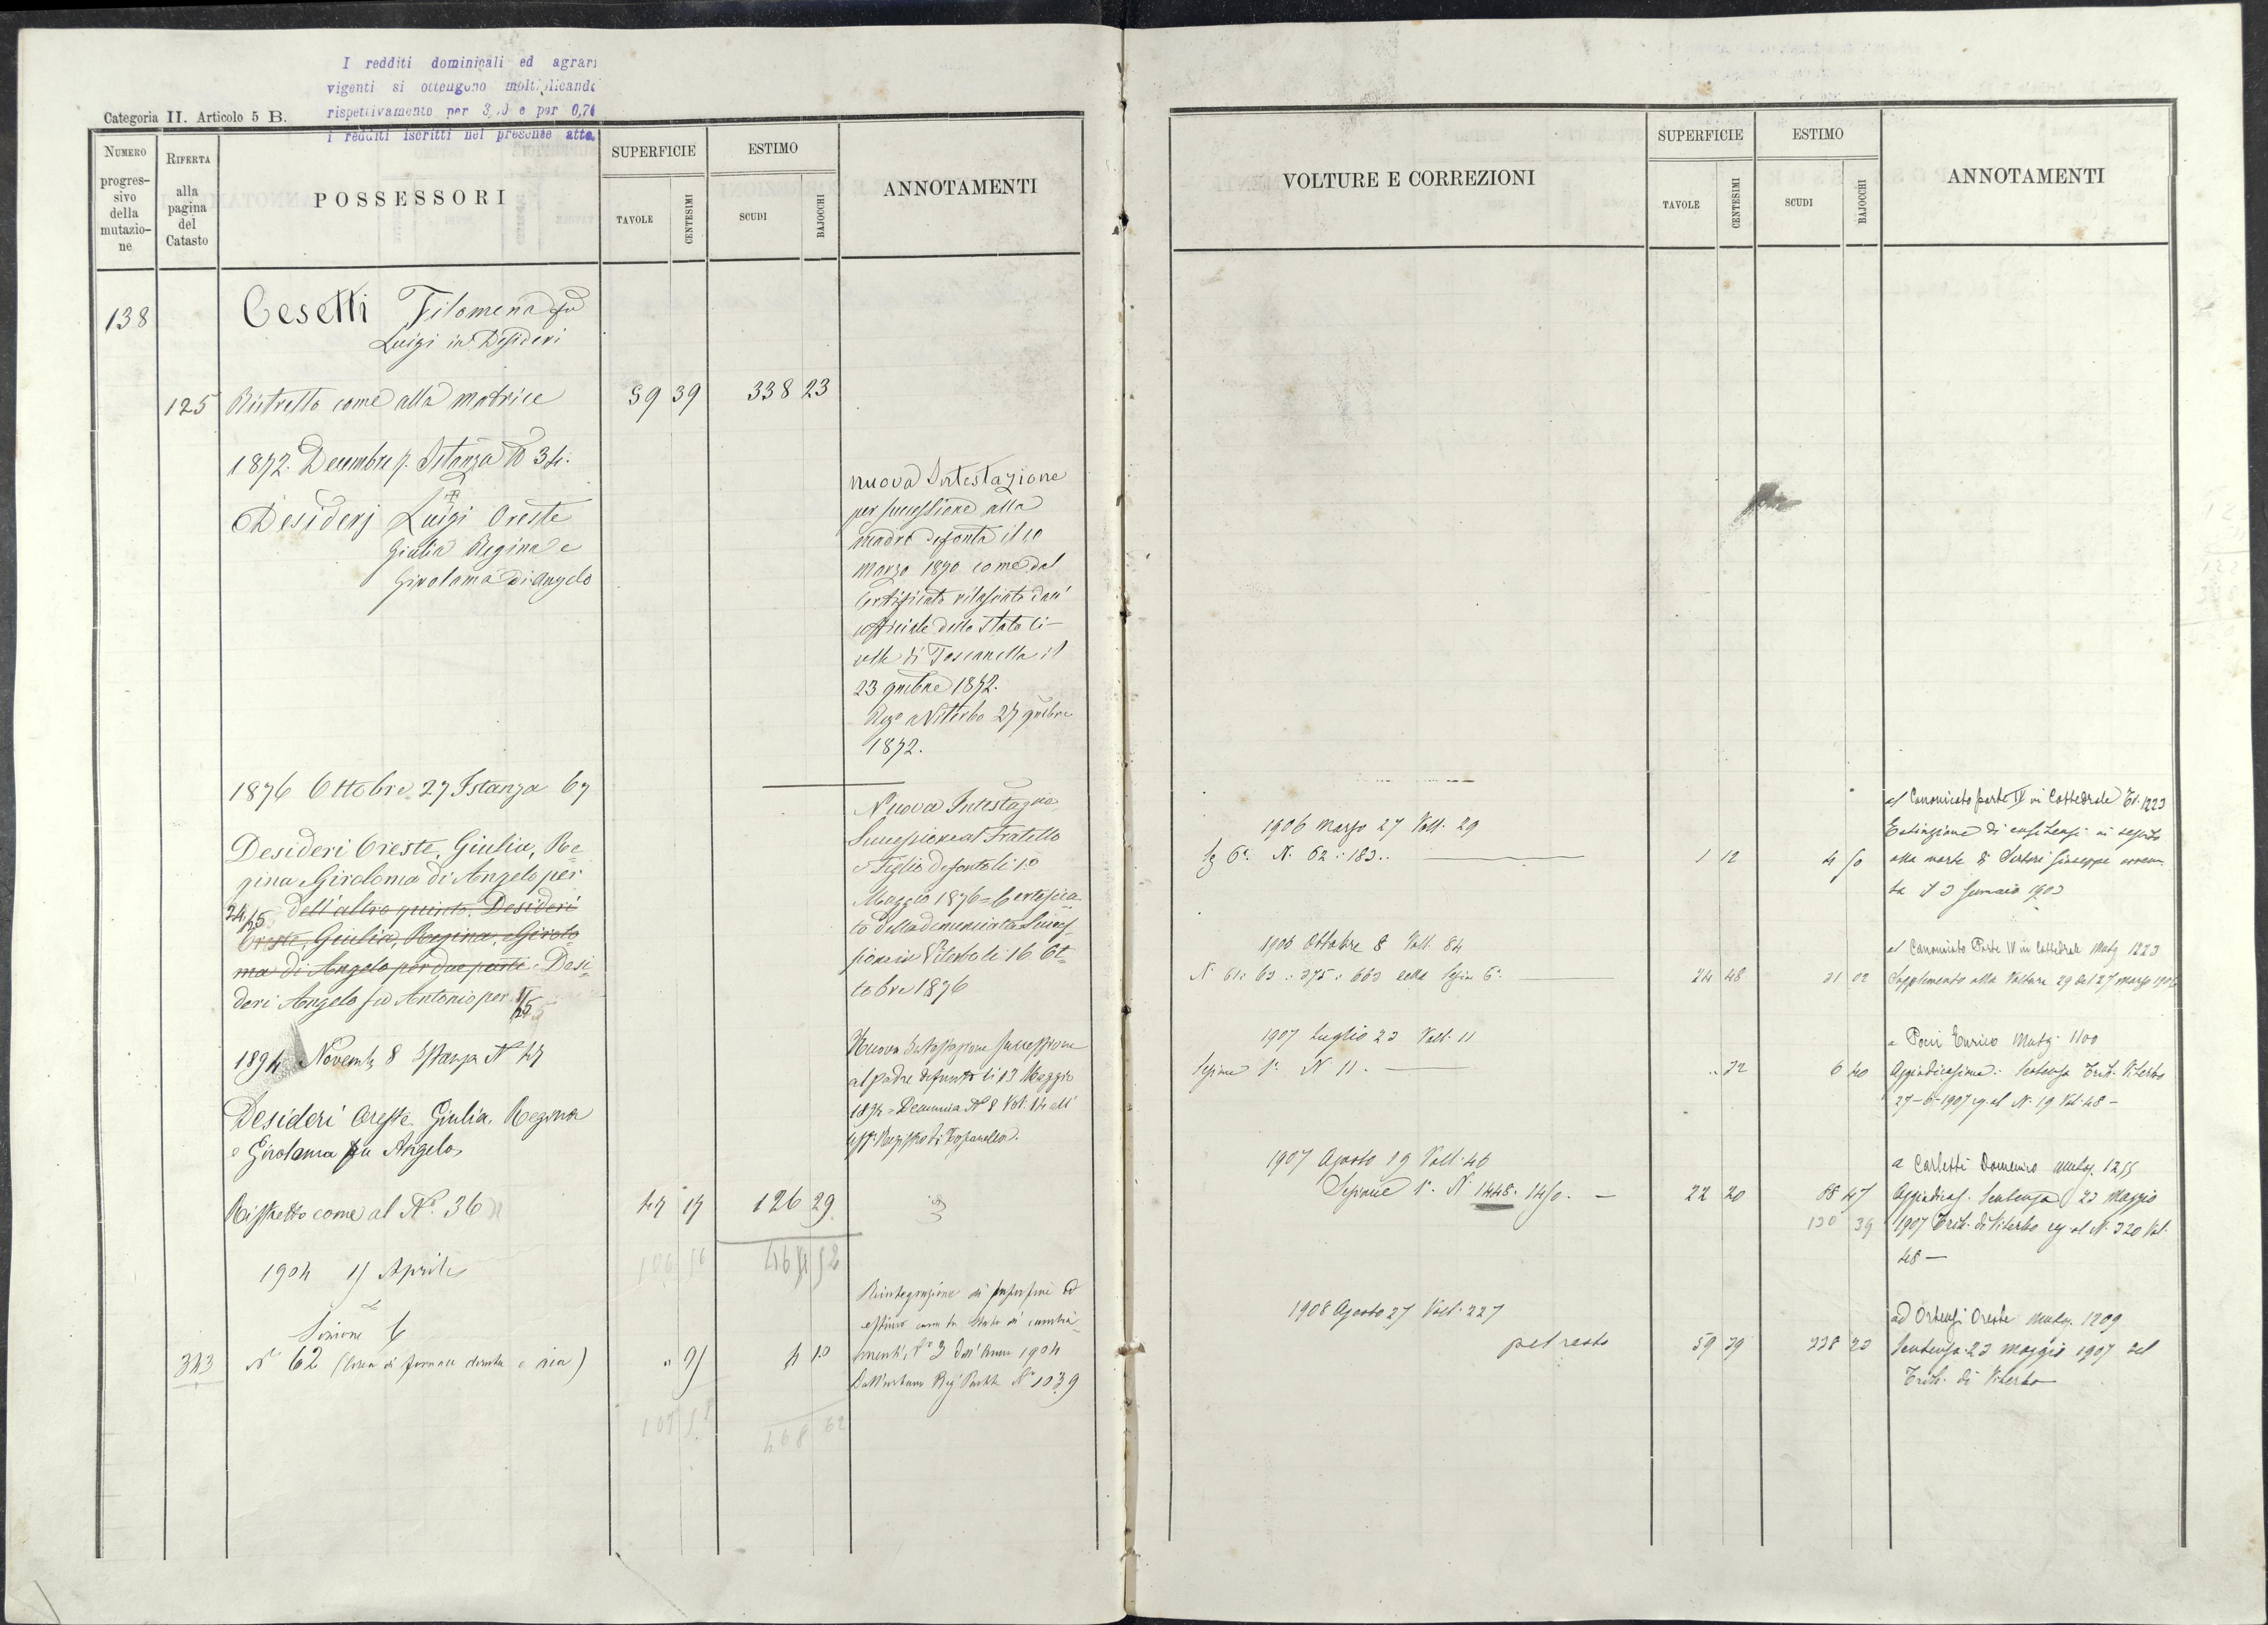 I redditi dominicali ed agrari
vigenti si ottengono moltiplicando
rispettivamente per e per 0,70
i redditi iscritti nel presente atto.
Categoria II. Articolo 5 B.
NUMERO
progres-
sivo
della
mutazio-
ne
RIFERTA
alla
pagina
del
Catasto
POSSESSORI
SUPERFICIE
TAVOLE
CENTESIMI
ESTIMO
SCUDI
BAJOCCHI
ANNOTAMENTI
138
Cesetti Filomena fu
Luigi in Desideri
125 Ristretto come alla matrice 59 39 338 23
1872. Decembre Istanza N 34.
Desiderj Luigi Oreste
Giulia Regina e
Girolama di Angelo
nuova Intestazione
per successione alla
madre defonta il 10
Marzo 1870 come dal
Certificato rilasciato dall'
officiale dello Stato Ci-
vile di Toscanella il
23 9mbre 1872.
Viterbo 27 9mbre
1872.
1876 Ottobre 27 Istanza 67
Desideri Oreste, Giulia, Re
gina e Giroloma di Angelo per
24/25 dell'altro quinto. Desideri
Oreste, Giulia, Regina, e Girolo
ma di Angelo per due parti. Desi
deri Angelo fu Antonio per 1/25
Nuova Intestazio
Successione al Fratello
e Figlio defonto li 10
Maggio 1876 = Certifica
to della denunciata Succes
sione in Viterbo li 16 Ot
tobre 1876
1894 Novemb 8 Istanza N 47
Desideri Oreste Giulia, Regina
e Girolama fu Angelo
Nuova Intestazione successione
al padre defunto li 13 Maggio
1894 = Denuncia N 8 Vol. 14 all'
Uff. Registro di Toscanella.
Ristretto come al N. 36 47 17 126 29
106 56 464 52
1904 15 Aprile
Sezione 6
343 N 62 (Area di fornace diruta e aia) " 95 4 10
Reintegrazione di superficie ed
estimo come da Stato di cambia
menti N 3 dell'Anno 1904
Partite N 1039
107 51 468 62
VOLTURE E CORREZIONI
SUPERFICIE
TAVOLE
CENTESIMI
ESTIMO
SCUDI
BAJOCCHI
ANNOTAMENTI
1906 Marzo 27 Volt. 29
Sz 6a. N. 62 : 183.. 1 12 4 50
al Canonicato parte IV in Cattedrale 1223
Estinzione di enfiteusi in seguito
alla morte di Sartori Giuseppe avvenu
ta il 3 Gennaio 1903
1906 Ottobre 8 Volt. 84
N. 61: 63 : 375 : 663 della Sezione 6a. 24 48 31 02
al Canonicato Parte IV in Cattedrale Matz 1223
Supplemento alla Voltura 29 del 27 marzo 1906
1907 Luglio 23 Volt. 11
Sezione 1a N 11. .. 32 6 40
a Enrico Matz. 1100
Aggiudicazione: Sentenza Trib. Viterbo
27-6-1907 reg al N. 19 Vol. 48 -
1907 Agosto 19 Volt. 46
Sezione 1a. N 1448. 1450. 22 20 88 47
130 39
a Carletti Domenico Matz. 1255
Aggiudicaz. Sentenza 23 Maggio
1907 Trib. di Viterbo reg al N. 320 Vol.
48 -
1908 Agosto 27 Volt. 227
pel resto 59 39 338 23
ad Ortensi Oreste Matz. 1209
Sentenza 23 maggio 1907 del
Trib. di Viterbo